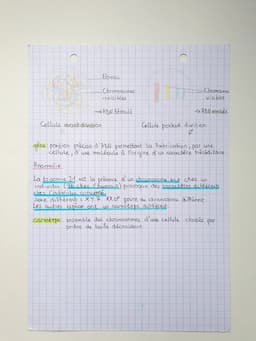 Noyau
Chromosomes
invisibles
→ ADN déroulé
Chromosomes
visibles
→ ADN enroulé
Cellule avant division
Cellule pendant division
gène : portion précise d'ADN permettant la fabrication, par une
cellule, d'une molécule à l'origine d'un caractère héréditaire
Anomalie
La trisomie 21 est la présence d'un chromosome 21 chez un
individu (chez l'homme) provoque des caractères différents
chez l'individu
Sexe différent : X Y ≠ paire de chromosomes différent.
Les autres espèces ont un caryotype différent.
caryotype : ensemble des chromosomes d'une cellule classés par
ordre de taille décroissant